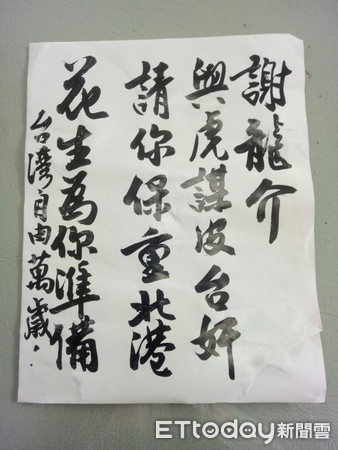 謝龍介
與虎謀皮台奸
請你保重北港
花生為你準備
台灣自由萬歲..
ETtoday新聞雲